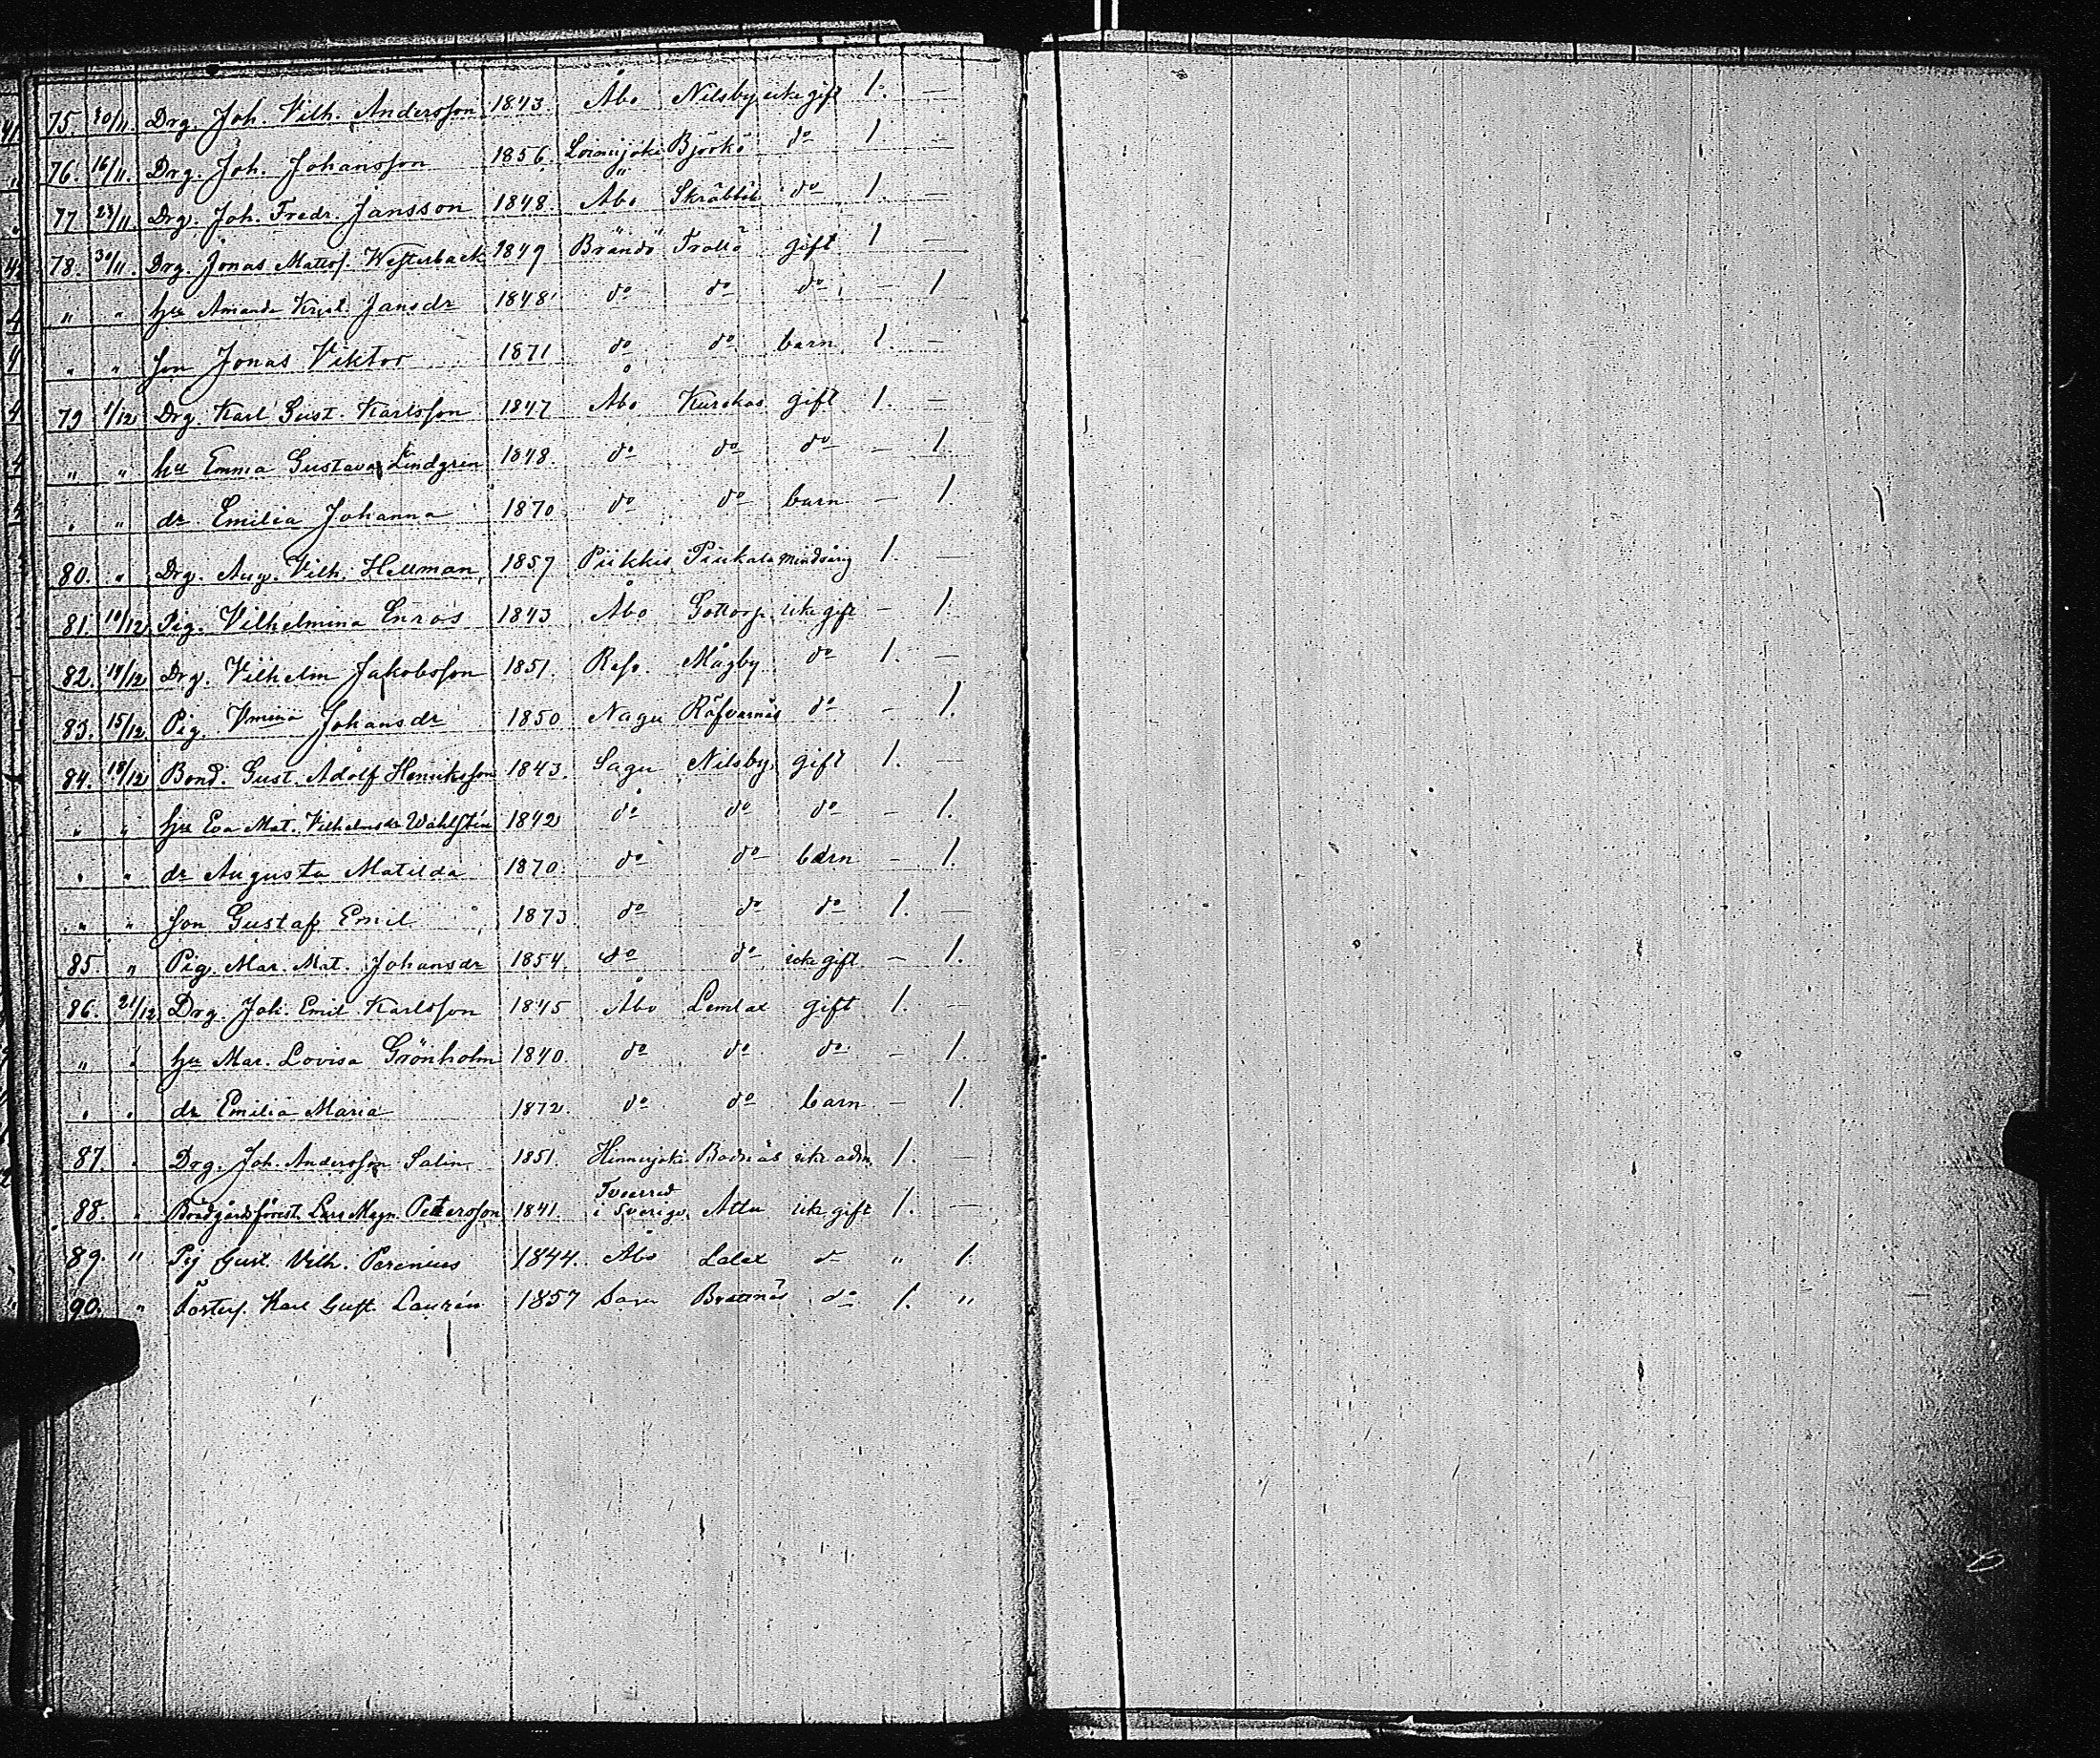 75. 10/11. Drg. Joh. Vilh. Andersson 1843. Åbo Nilsby icke gift 1. —
76. 16/11. Drg. Joh. Johansson 1856. Loimijoki Björkö do 1 —
77 23/11. Drg. Joh. Fredr. Jansson 1848. Åbo Skräbböle do 1. —
78. 30/11. Drg. Jonas Mattss. Westerback 1849 Brändö Trollö gift 1 —
" " hu Amanda Krist. Jansdr 1848 do do do — 1
" " son Jonas Viktor 1871 do do barn 1. —
79 1/12 Drg. Karl Gust. Karlsson 1847 Åbo Kurckas gift 1. —
" " hu Emma Gustava Lindgren 1848. do do do — 1.
" " dr Emilia Johanna 1870 do do barn — 1.
80. " Drg. Aug. Vilh. Hellman 1857 Piikkis Piukala mindårig 1. —
81. 10/12 Pig. Vilhelmina Enros 1843 Åbo Gottorp icke gift — 1.
82. 14/12 Drg. Vilhelm Jakobsson 1851. Reso Mågby do 1. —
83. 15/12 Pig. Vmina Johansdr 1850 Nagu Räfvarnäs do — 1.
84. 18/12 Bond. Gust. Adolf Henriksson 1843. Sagu Nilsby gift 1. —
" " hu Eva Mat. Vilhelmsdr Wåhlstén 1842 do do do — 1.
" " dr Augusta Matilda 1870. do do barn — 1.
" " son Gustaf Emil 1873 do do do 1. —
85 " Pig. Mar. Mat. Johansdr 1854. do do icke gift — 1.
86. 21/12 Drg. Joh. Emil Karlsson 1845 Åbo Lemlax gift 1. —
" " hu Mar. Lovisa Grönholm 1840. do do do — 1.
" " dr Emilia Maria 1872. do do barn — 1.
87. " Drg. Joh. Andersson Salin 1851. Hinnerjoki Bodnäs icke adm. 1. —
88. " Brädgårdsförest. Lars Magn. Petersson 1841. Tveered i Sverige Attu icke gift 1. —
89. " Pig Gust. Vilh. Perenius 1844. Åbo Lalax do " 1.
90. " Karl Gust. Laurén 1857 Brattnäs do 1. "